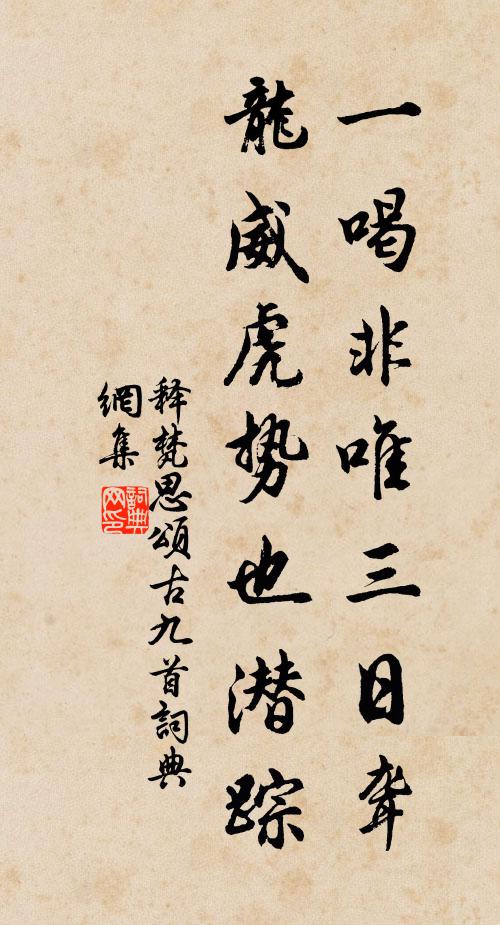 一喝非唯三日聋
龍威虎势也潜踪
释梵思頌古九首詞典
網集
詞典网印